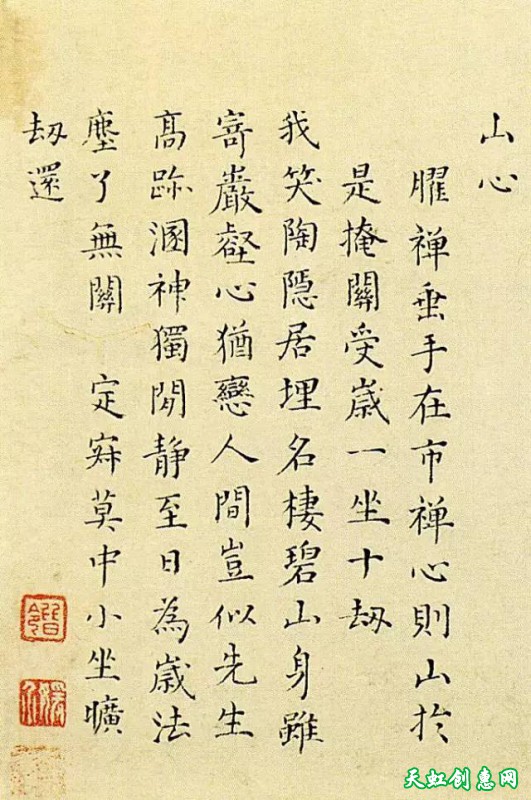 山心
臞禪垂手在市禪心則山於
是掩關受歲一坐十刼
我笑陶隱居埋名棲碧山身雖
寄巖壑心猶戀人間豈似先生
高跡溷神獨閒静至日為歲法
塵了無關 定寂莫中小坐曠
刼還
天虹创惠网